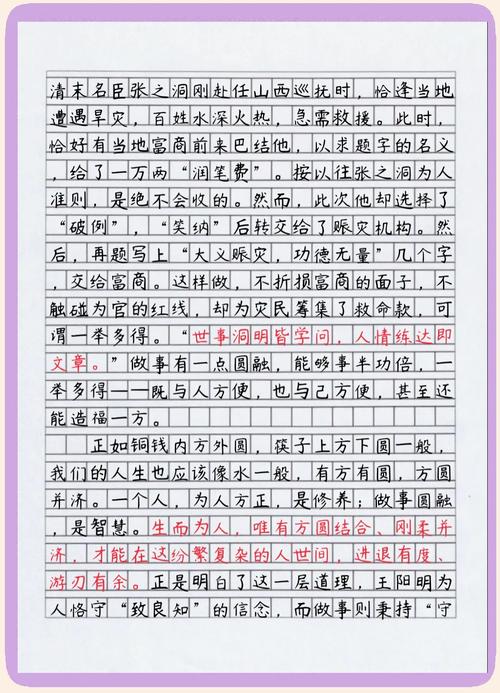 清末名臣张之洞刚赴任山西巡抚时，恰逢当地
遭遇旱灾，百姓水深火热，急需救援。此时，
恰好有当地富商前来巴结他，以求题字的名义
，给了一万两“润笔费”。按以往张之洞为人
准则，是绝不会收的。然而，此次他却选择了
“破例”，“笑纳”后转交给了赈灾机构。然
后，再题写上“大义赈灾，功德无量”几个字
，交给富商。这样做，不折损富商的面子，不
触碰为官的红线，却为灾民筹集了救命款，可
谓一举多得。“世事洞明皆学问，人情练达即
文章。”做事有一点圆融，能够事半功倍，一
举多得——既与人方便，也与己方便，甚至还
能造福一方。
正如铜钱内方外圆，筷子上方下圆一般，
我们的人生也应该像水一般，有方有圆，方圆
并济。一个人，为人方正，是修养；做事圆融
，是智慧。生而为人，唯有方圆结合、刚柔并
济，才能在这纷繁复杂的人世间，进退有度、
游刃有余。正是明白了这一层道理，王阳明为
人恪守“致良知”的信念，而做事则秉持“守